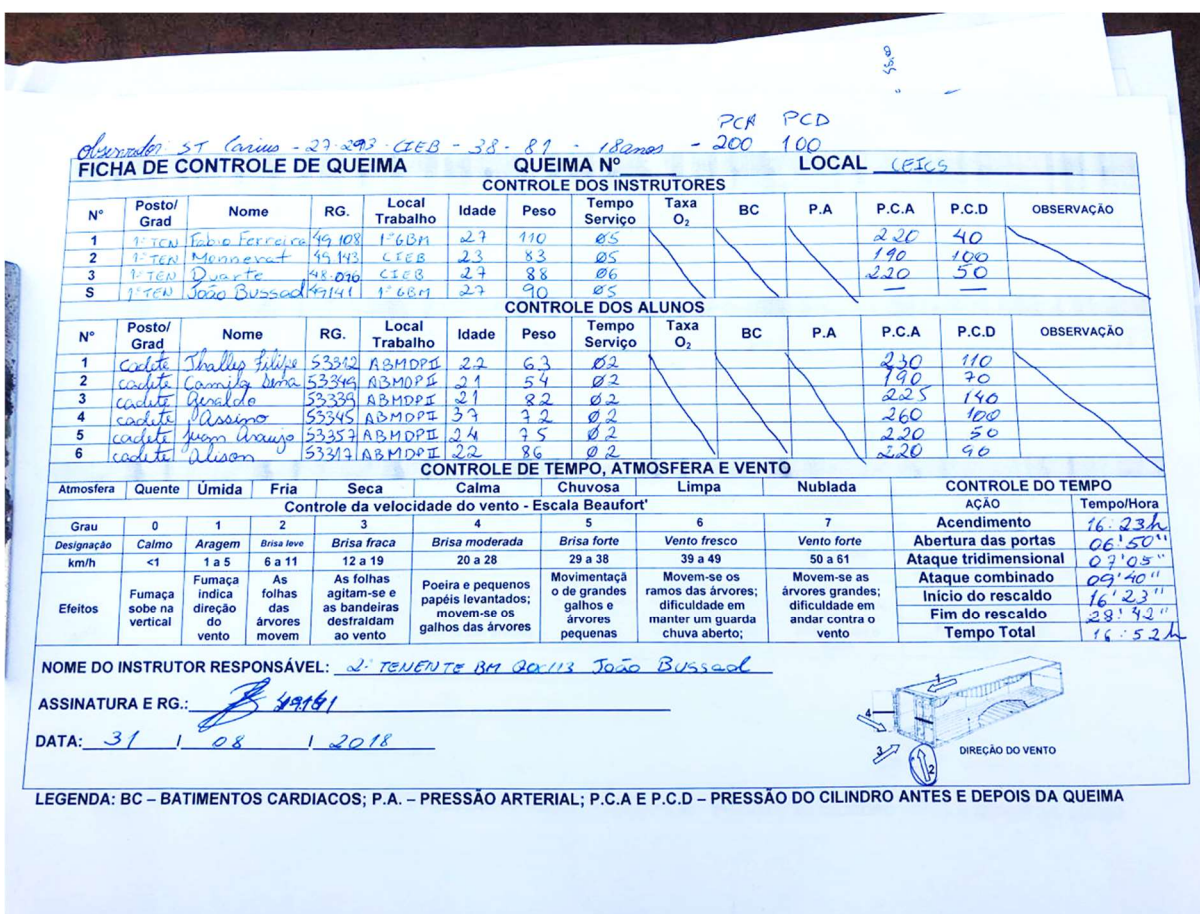 45.00
PCA PCD
Observador: ST Carius - 27.293 - CIEB - 38 - 81 - 18 anos - 200 100
FICHA DE CONTROLE DE QUEIMA QUEIMA Nº____ LOCAL CEICS
CONTROLE DOS INSTRUTORES
N° Posto/Grad Nome RG. Local Trabalho Idade Peso Tempo Serviço Taxa O2 BC P.A P.C.A P.C.D OBSERVAÇÃO
1 1º TEN Fabio Ferreira 49.108 1º GBM 27 110 Ø5 220 40
2 1º TEN Mennerat 49.143 CIEB 23 83 Ø5 190 100
3 1º TEN Duarte 48.096 CIEB 27 88 Ø6 220 50
S 1º TEN João Bussad 49141 1º GBM 27 90 Ø5 — —
CONTROLE DOS ALUNOS
N° Posto/Grad Nome RG. Local Trabalho Idade Peso Tempo Serviço Taxa O2 BC P.A P.C.A P.C.D OBSERVAÇÃO
1 cadete Thalles Filipe 53312 ABMDPII 22 63 Ø2 230 110
2 cadete Camila Sena 53349 ABMDPII 21 54 Ø2 190 70
3 cadete Geraldo 53339 ABMDPII 21 82 Ø2 225 140
4 cadete Assino 53345 ABMDPII 37 72 Ø2 260 100
5 cadete Juan Araujo 53357 ABMDPII 24 75 Ø2 220 50
6 cadete Alison 53317 ABMDPII 22 86 Ø2 220 90
CONTROLE DE TEMPO, ATMOSFERA E VENTO
Atmosfera Quente Úmida Fria Seca Calma Chuvosa Limpa Nublada CONTROLE DO TEMPO
Controle da velocidade do vento - Escala Beaufort' AÇÃO Tempo/Hora
Grau 0 1 2 3 4 5 6 7 Acendimento 16:23h
Designação Calmo Aragem Brisa leve Brisa fraca Brisa moderada Brisa forte Vento fresco Vento forte Abertura das portas 06'50"
km/h <1 1 a 5 6 a 11 12 a 19 20 a 28 29 a 38 39 a 49 50 a 61 Ataque tridimensional 07'05"
Efeitos Fumaça sobe na vertical Fumaça indica direção do vento As folhas das árvores movem As folhas agitam-se e as bandeiras desfraldam ao vento Poeira e pequenos papéis levantados; movem-se os galhos das árvores Movimentaçã o de grandes galhos e árvores pequenas Movem-se os ramos das árvores; dificuldade em manter um guarda chuva aberto; Movem-se as árvores grandes; dificuldade em andar contra o vento
Ataque combinado 09'40"
Início do rescaldo 16'23"
Fim do rescaldo 28'42"
Tempo Total 16:52h
NOME DO INSTRUTOR RESPONSÁVEL: 2º TENENTE BM QOC/13 João Bussad
ASSINATURA E RG.: 49141
DATA: 31 / 08 / 2018
1
4
3
2
DIREÇÃO DO VENTO
LEGENDA: BC – BATIMENTOS CARDIACOS; P.A. – PRESSÃO ARTERIAL; P.C.A E P.C.D – PRESSÃO DO CILINDRO ANTES E DEPOIS DA QUEIMA